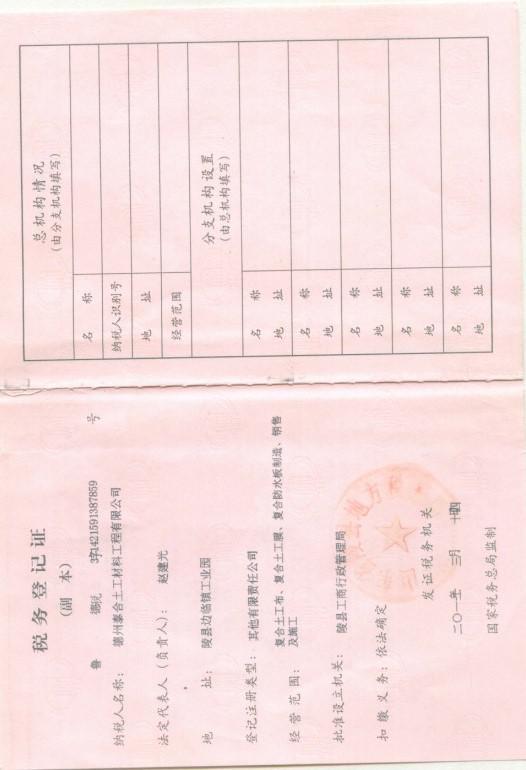 税务登记证
(副 本)
鲁 德税 字421591387859 号
纳税人名称: 德州泰合土工材料工程有限公司
法定代表人(负责人): 赵建光
地 址: 陵县边临镇工业园
登记注册类型: 其他有限责任公司
经营范围: 复合土工布、复合土工膜、复合防水板制造、销售
及施工
批准设立机关: 陵县工商行政管理局
扣缴义务: 依法确定
发证税务机关
二〇一一年 三月 十四
国家税务总局监制
总机构情况
(由分支机构填写)
名 称
纳税人识别号
地 址
经营范围
分支机构设置
(由总机构填写)
名 称
地 址
名 称
地 址
名 称
地 址
名 称
地 址
名 称
地 址